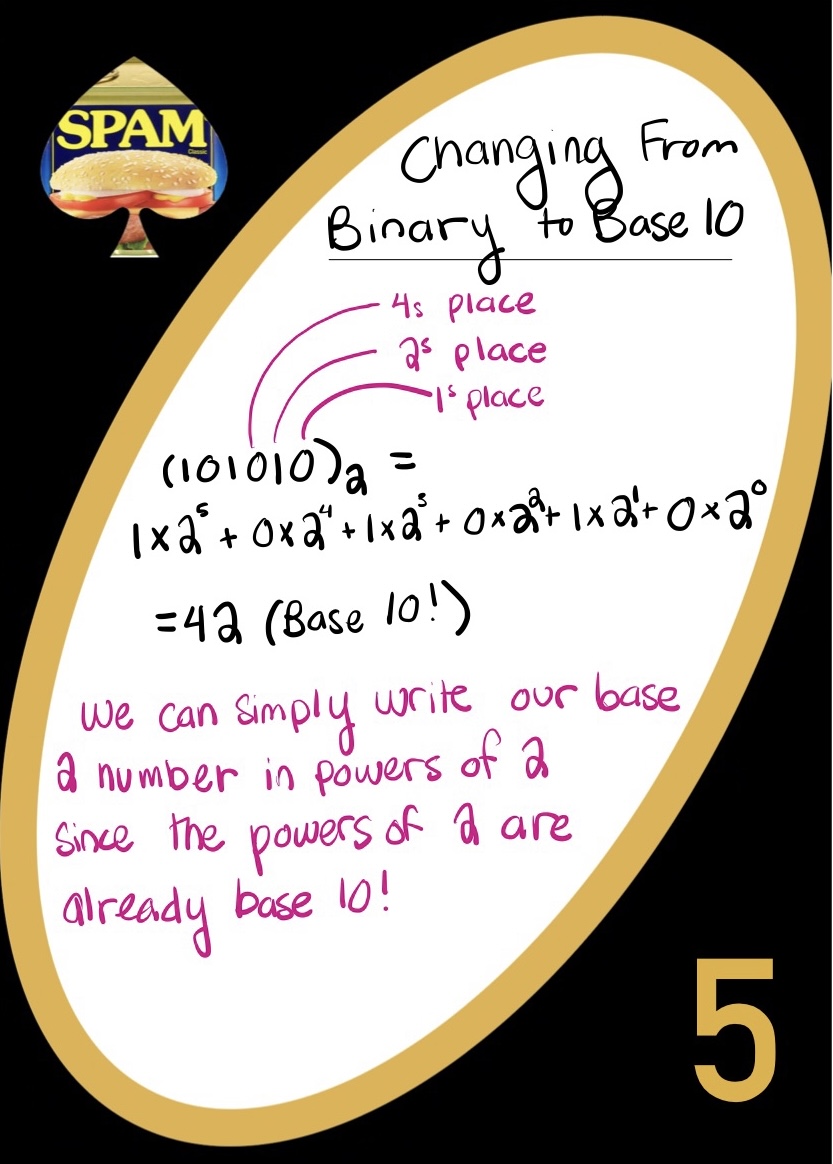 SPAM
Classic
Changing From
Binary to Base 10
4s place
2s place
1s place
(101010)₂ =
1×2⁵ + 0×2⁴ + 1×2³ + 0×2² + 1×2¹ + 0×2⁰
=42 (Base 10!)
We can simply write our base
2 number in powers of 2
since the powers of 2 are
already base 10!
5